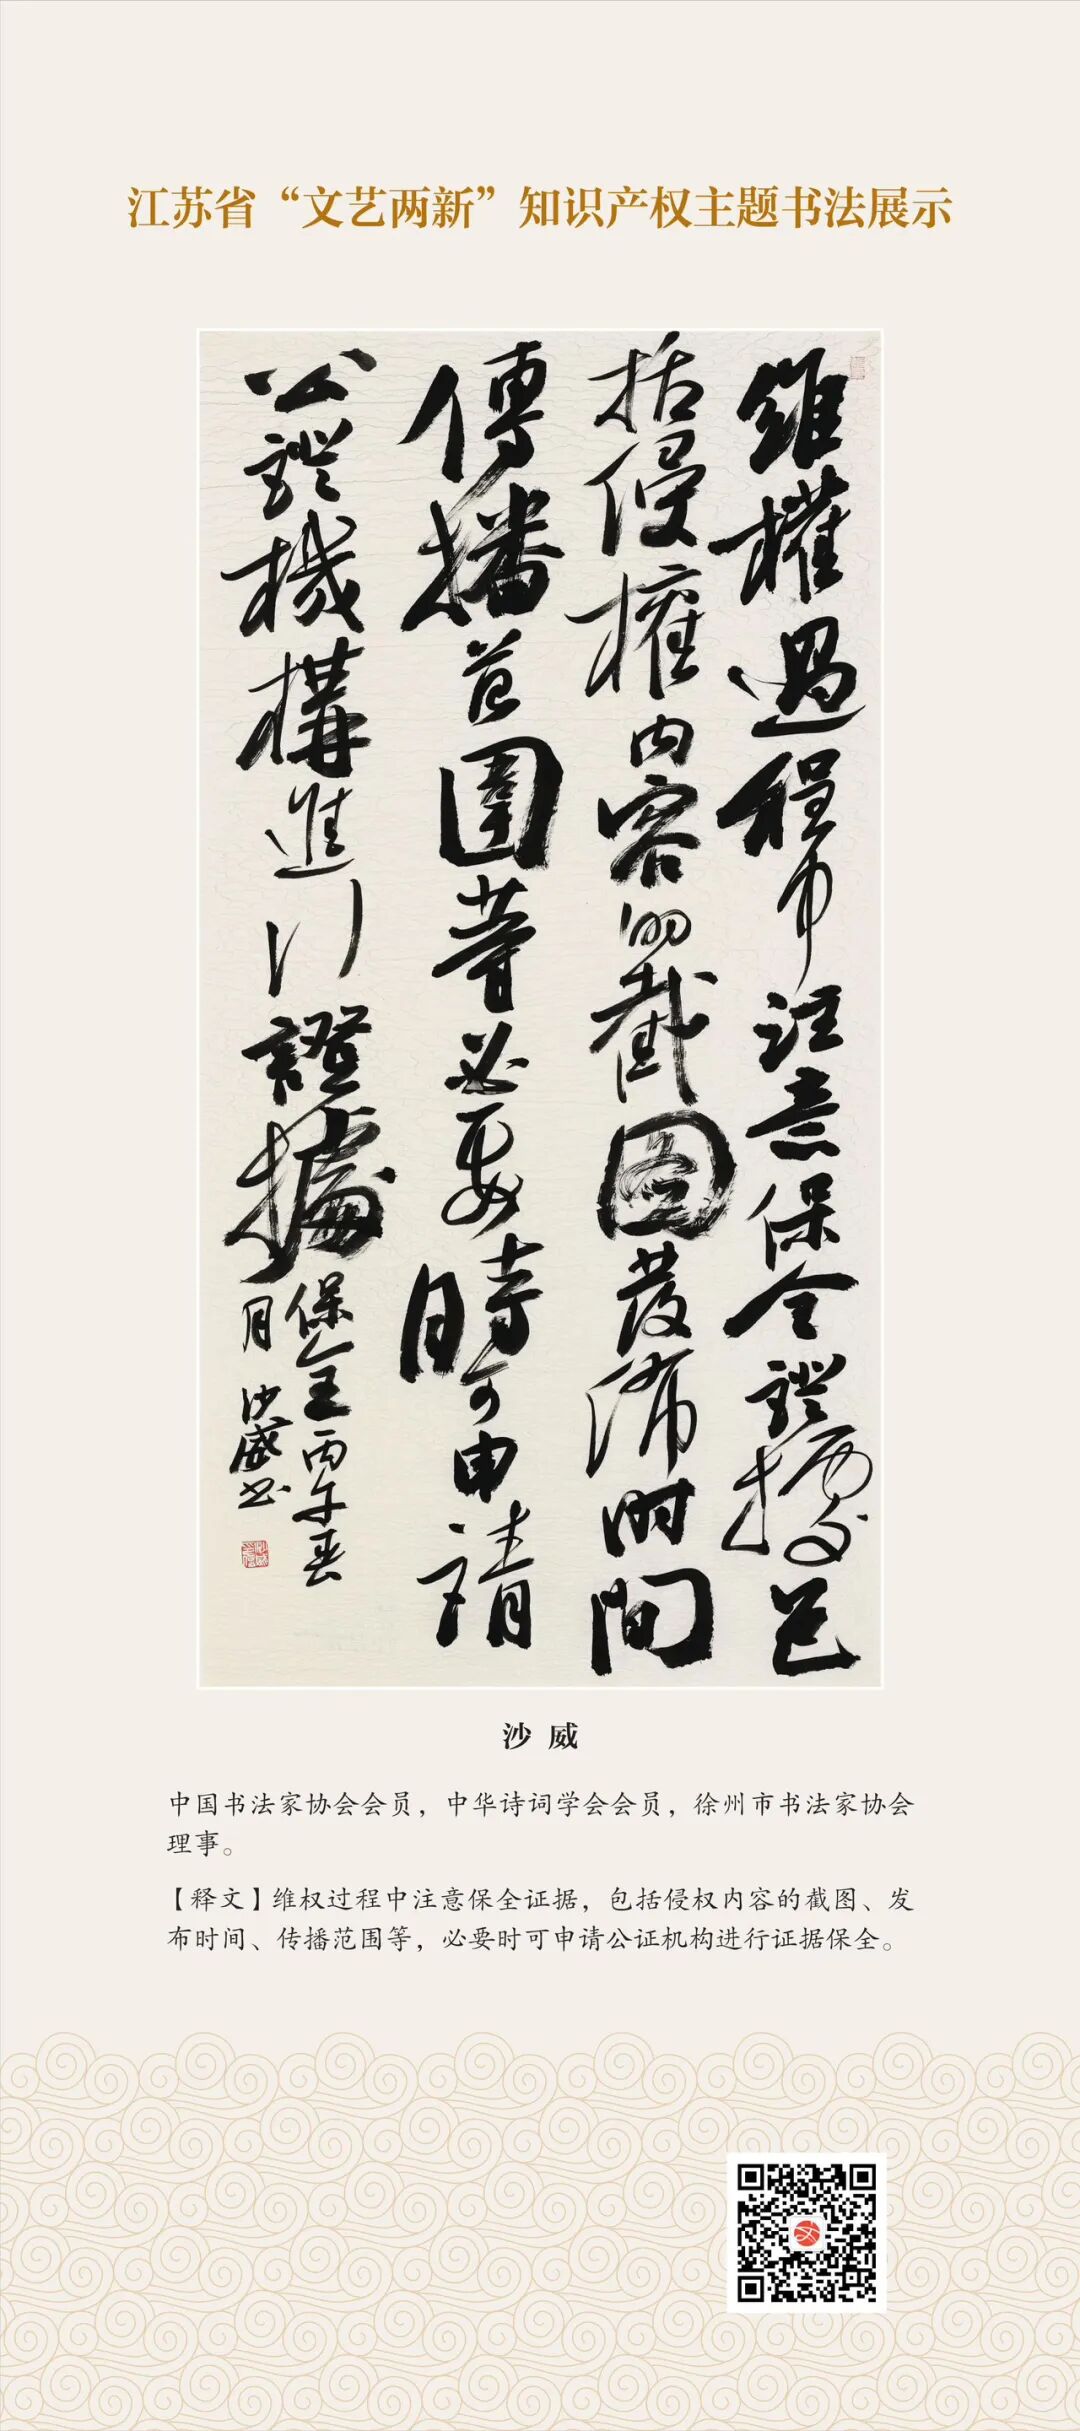 江苏省“文艺两新”知识产权主题书法展示
維權過程中注意保全證據包
括侵權内容的截圖發佈时间
傳播范圍等必要時可申請
公證機構進行證據保全丙午春
月沙威书
沙威
中国书法家协会会员，中华诗词学会会员，徐州市书法家协会
理事。
【释文】维权过程中注意保全证据，包括侵权内容的截图、发
布时间、传播范围等，必要时可申请公证机构进行证据保全。